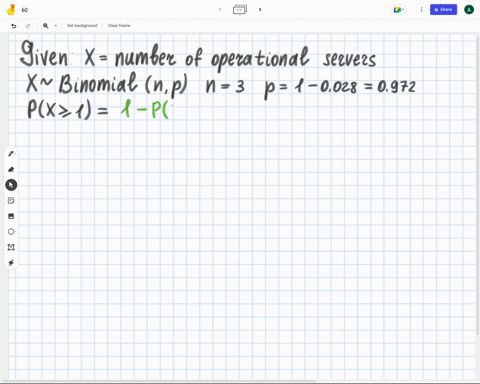 60
Set background
Clear frame
Share
A
Given X = number of operational servers
X ~ Binomial (n, p) n = 3 p = 1 - 0.028 = 0.972
P(X ⩾ 1) = 1 - P(